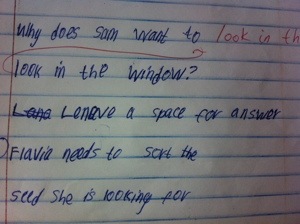 Why does sam want to look in th
look in the window?
Leneave a space for answer
Flavia needs to sort the
seed she is looking for